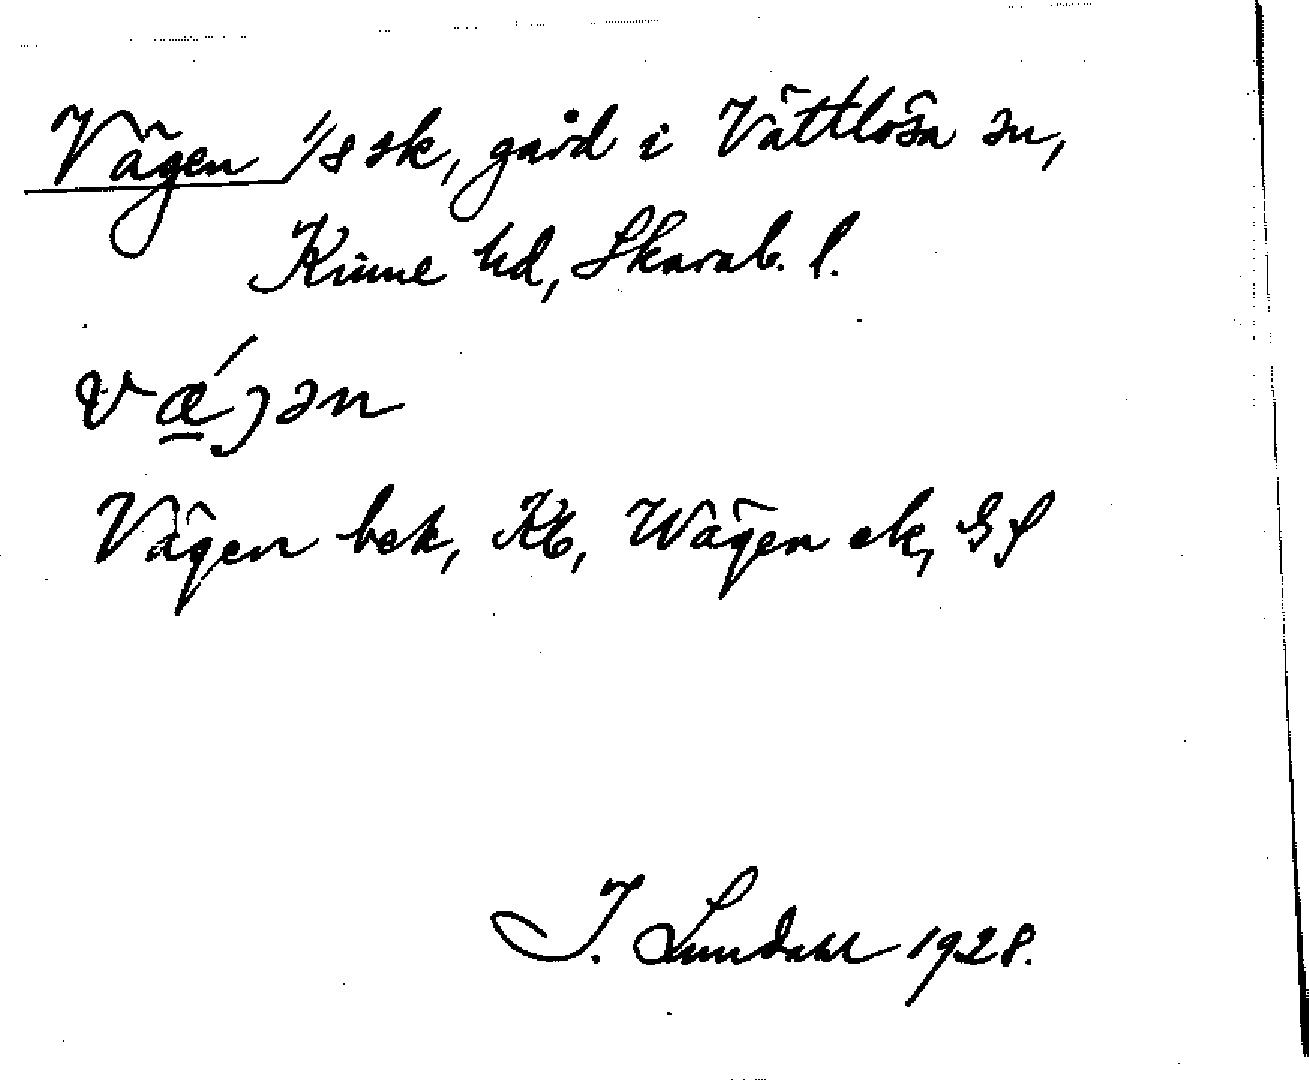 Vägen 1/8 sk, gård i Vättlösa sn,
Kinne hd, Skarab. l.
vǽ̲jən
Vägen bek, Kb, Wägen ek,
I. Lundahl 1928.